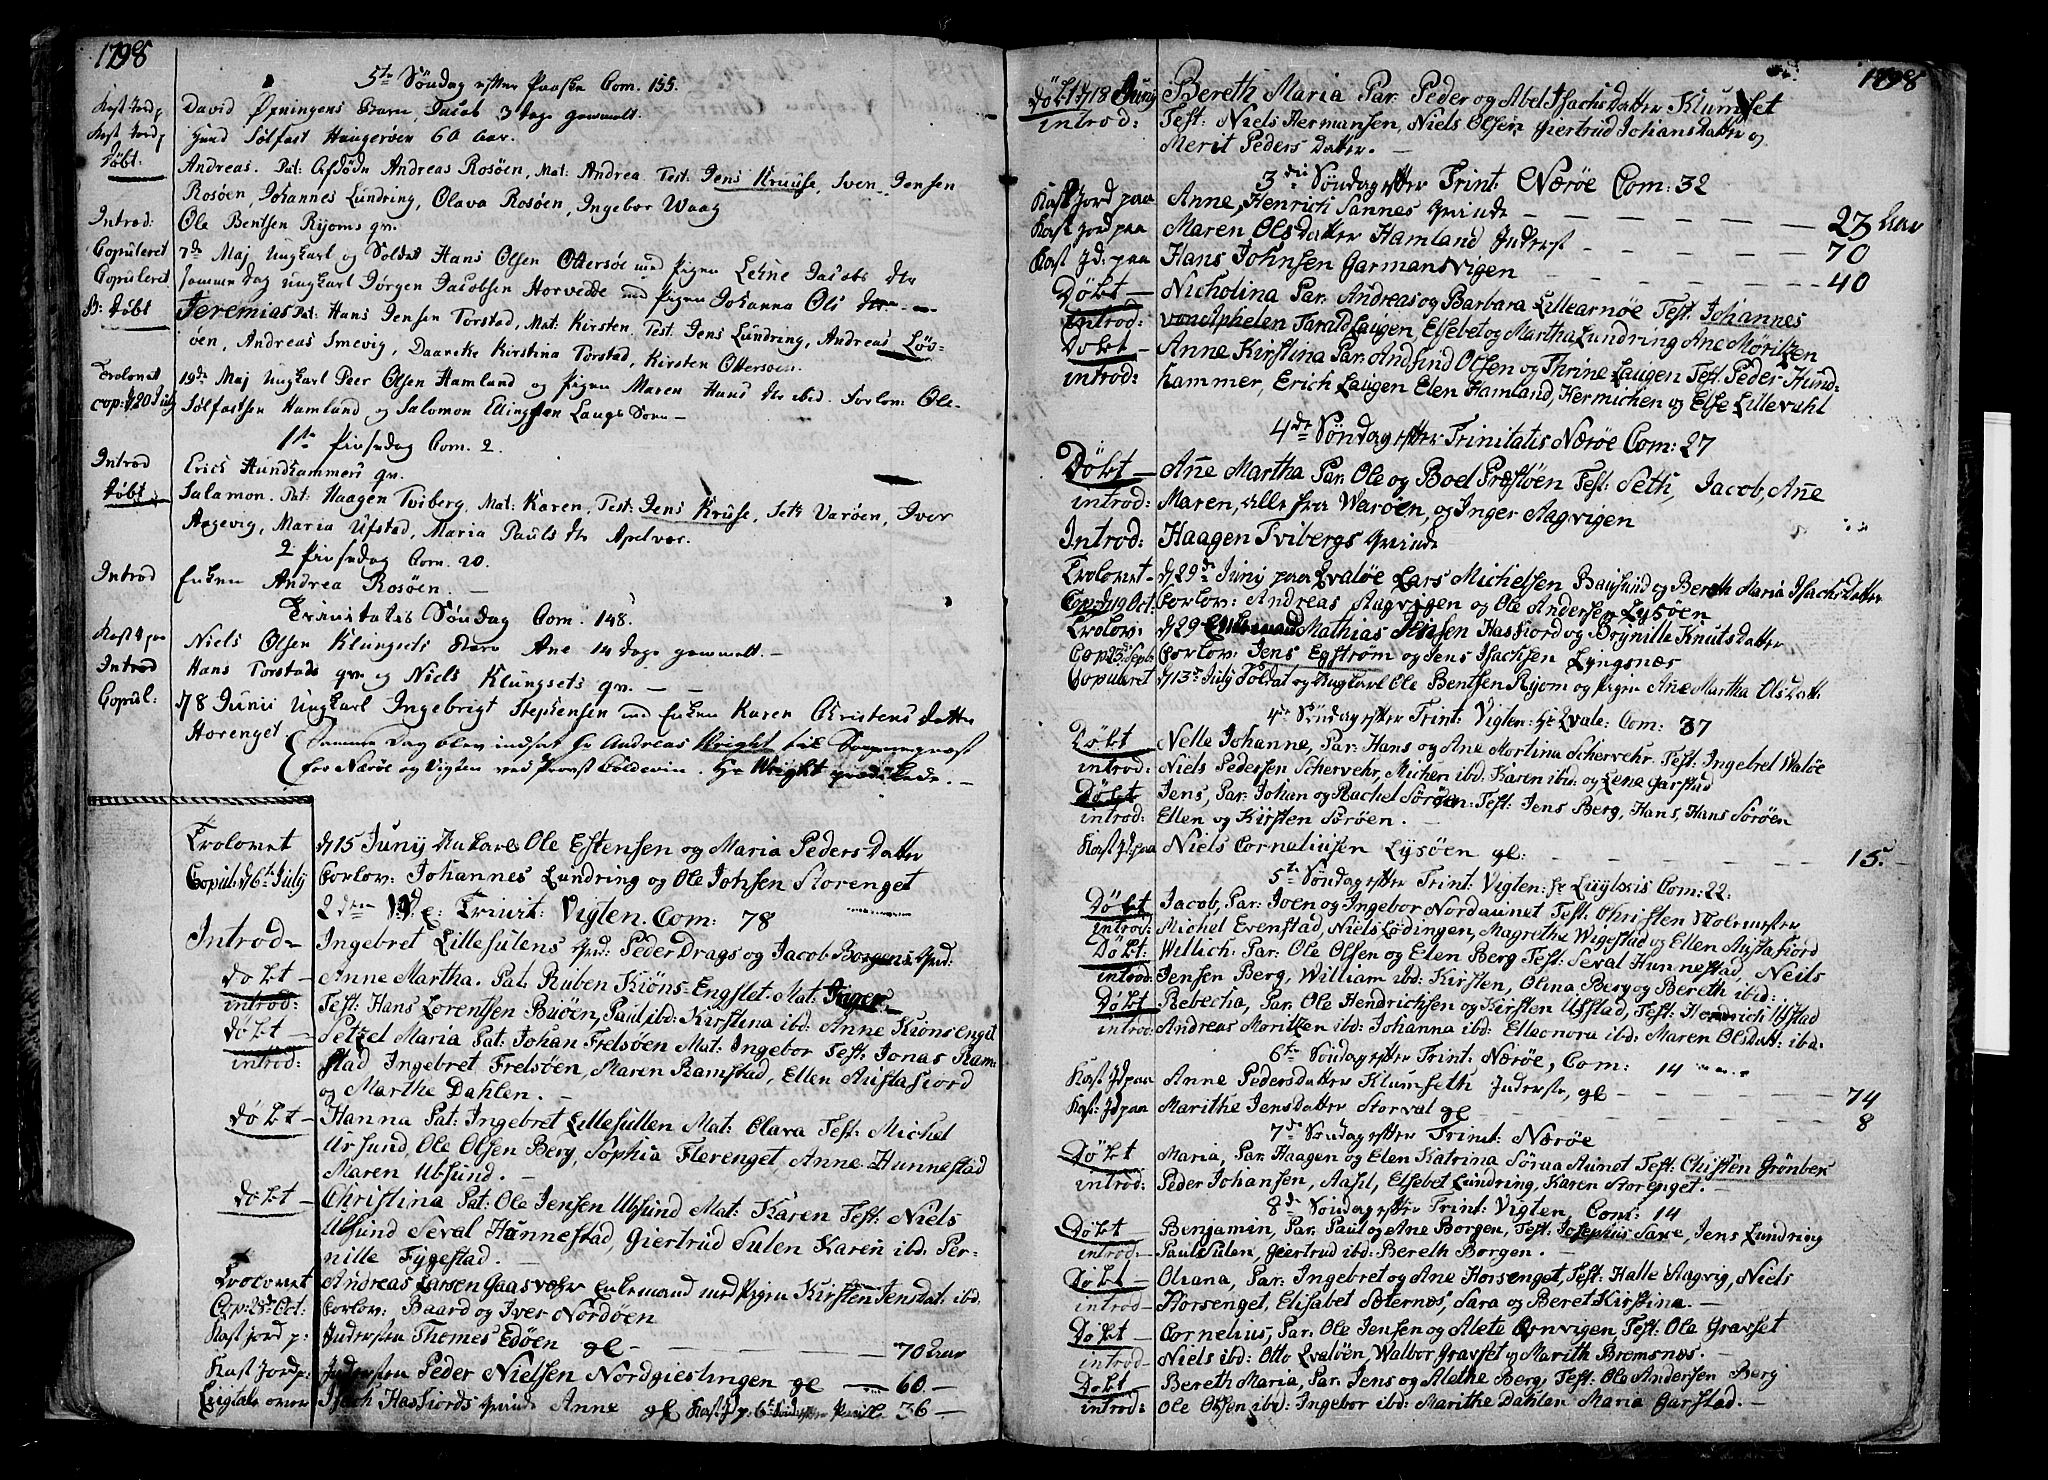 1798
5te Søndag efter Paaske Com. 155.
Kast Jord p David Øxningens Barn, Jacob 3 dage gammelt.
Kast Jord p Hund Sølfast Haugerøen 60 Aar.
Døbt: Andreas. Pat: Afdøde Andreas Rosøen, Mat: Andrea Test: Jens Kruuse, Sven Jensen
Rosøen, Johannes Lundring, Olava Rosøen, Ingebor Waag
Introd: Ole Bentsen Ryoms qv.
Copuleret 7de Maj Ungkarl og Soldat Hans Olsen Ottersøe med Pigen Lehne Jacobs dtr
Copuleret samme dag Ungkarl Jørgen Jacobsen Horvedde med Pigen Johanna Ols dtr
B: Døbt Jeremias Pat: Hans Jensen Torstad, Mat: Kirsten, Test: Jens Lundring, Andreas Lør-
øen, Andreas Smevig, Daaneke Kirstina Torstad, Kirsten Ottersøen.
Trolovet 19de Maj Ungkarl Peer Olsen Hamland og Pigen Maren Hans dtr ibid. Forlov: Ole
cop: d 20 July Sølfastsen Hamland og Salomon Ellingsen Laugs Søn
1ste Pintsedag Com. 2.
Introd Erich Hundhammers qv.
Døbt Salamon. Pat: Haagen Tviberg, Mat: Karen, Test: Jens Kruse, Seth Varøen, Iver
Aagevig, Maria Ufstad, Maria Pauls dtr Apelvær.
2 Pintsedag Com. 20.
Introd Enken Andrea Rosøen.
Trinitatis Søndag Com. 148.
Kast J paa Niels Olsen Klungsets Barn Ane 14 dage gammelt.
Introd Hans Torstads qv. og Niels Klungsets qv.
Copul: d 8 Junii Ungkarl Ingebrigt Stephensen med Enken Karen Christens datter
Horenget
Samme Dag blev indsat Hr Andreas Wright til Sognepræst
for Nærøe og Vigten ved Provst Coldevin. Hr Wright prædikede.
Trolovet d 15 Juny Enkarl Ole Estensen og Maria Peders Datter
Copul: d 6te July Forlov: Johannes Lundring og Ole Johsen Storenget
2den S. E: Trinit: Vigten. Com: 78
Introd Ingebret Lillesulens qvd: Peder Drags og Jacob Borgens qvd:
Døbt Anne Martha. Pat: Ruben Kiöns-Engslet. Mat: Inger
introd: Test: Hans Lorentsen Buøen, Paul ibd: Kirstina ibd: Anne Kiønsenget
Døbt Petzel Maria Pat: Johan Frelsøen Mat: Ingebor Test: Jonas Ram-
introd: stad Ingebret Frelsøen, Maren Ramstad, Ellen Austafiord
og Marthe Dahlen.
Døbt Hanna Pat: Ingebret Lillesullen Mat: Olava Test: Michel
Ursund, Ole Olsen Berg, Sophia Flerenget, Anne Hunnestad
Maren Ubsund.
Døbt Christina Pat: Ole Jensen Ubsund Mat: Karen Test: Niels
Ubsund Seval Hunnestad, Giertrud Sulen Karen ibd: Per-
nille Fygestad.
Trolovet Andreas Larsen Gaasvær Enkemand med Pigen Kirsten Jensdat: ibd.
Cop: 28de Oct: Forlov: Baard og Iver Nordøen
Kast Jord p: Inderster Thomes Edøen gl 70 aar
Kast Jord p: Indersten Peder Nielsen Nordgieslingen gl 60
Ligtale over Isach Hasfiords qvinde Anne gl Kast J p 6te Søndag 36
1798
Døbt d 18 Juny Bereth Maria Par: Peder og Abel Isachs Datter Klumset
introd: Test: Niels Hermansen, Niels Olsen Giertrud Johans Datter og
Merit Peders Datter.
3die Søndag efter Trint: Nærøe Com: 32
Kast Jord paa Anne, Henrich Sannes qvinde 23 Aar
Kast Jord paa Maren Ols Datter Hamland Inderst 70
Kast Jd. paa Hans Johnsen Garmansvigen 40
Døbt Nicholina Par: Andreas og Barbara Lillearnøe Test: Johannes
introd: vonelphelen Tarald Laugen, Elsebet og Martha Lundring Ane Møritzen
Døbt Anne Kirstina Par: Andfind Olsen og Thrine Laugen Test: Peder Hund-
introd: hammer, Erich Laugen Elen Hamland, Hermichen og Else Lillevahl
4de Søndag efter Trinitatis Nærøe Com: 27
Døbt Añe Martha Par: Ole og Boel Præstøen Test: Seth, Jacob, Añe
introd: Maren, alle fra Warøen, og Inger Aagvigen
Introd: Haagen Tvibergs Qvinde
Trolovet d 29de Juny paa Qvaløe Lars Michelsen Bausund og Bereth Maria Isachs Datter
Cop: d 19 Oct: Forlov: Andreas Aagvigen og Ole Andersen Lysøen
Trolov: d 29 Mathias Jensen Hasfiord og Brynille Knuts Datter
Cop: 23 Septb: Forlov: Jens Egstrøm og Jens Isachsen Lyngsnæs
Copuleret d 13de July Soldat og Ungkarl Ole Bentsen Ryom og Pigen Añe Martha Olsdatt:
4de Søndag efter Trint: Vigten: Hr Qvale: Com: 37
Døbt Nelle Johanne, Par: Hans og Ane Mortina Schervehr. Test: Ingebret Waløe
introd: Niels Pedersen Schervehr, Michen ibd: Karen ibd: og Lene Garstad
Døbt Jens, Par: Johan og Rachel Sørøen: Test: Jens Berg, Hans, Hans Sørøen
introd: Ellen og Kirsten Sørøen.
Kast Jd. paa Niels Corneliusen Lysøen gl: 15.
5te Søndag efter Trint: Vigten: Com: 22:
Døbt Jacob, Par: Joen og Ingebor Nordaunet Test: Christen Holemester
introd: Michel Evenstad, Niels Lødingen, Magrethe Wigestad og Ellen Austafiord
Døbt: Willich Par: Ole Olsen og Elen Berg Test: Seval Hunnestad, Neils
introd: Jensen Berg, William ibd: Kirsten, Olina Berg og Bereth ibd:
Døbt Rebecha, Par: Ole Hendrichsen og Kirsten Ufstad, Test: Henrich Ufstad
introd: Andreas Moritzen ibd: Johanna ibd: Elleonora ibd: Maren Olsdatt: ibd:
6te Søndag efter Trint: Nærøe, Com: 14
Kast Jd paa Anne Pedersdatter Klumseth Inderste, gl 74
Kast: Jd paa Marithe Jensdatter Storval gl 8
7de Søndag efter Trint: Nærøe
Døbt Maria, Par: Haagen og Elen Katrina Søraa Aunet Test: Christen Grønber
introd: Peder Johansen, Aasil, Elsebet Lundring, Karen Storenget.
8de Søndag efter Trint: Vigten, Com: 14
Døbt Benjamin, Par: Paul og Ane Borgen, Test: Josephus Saxe, Jens Lundring
introd Paul Sulen, Geertrud ibd: Bereth Borgen.
Døbt Oliana, Par: Ingebret og Ane Horsenget, Test: Halle Aagvig, Niels
introd Horsenget, Elisabet Sæternes, Sara og Beret Kirstina.
Døbt Cornelius, Par: Ole Jensen og Alete Qvnvigen, Test: Ole Gravset
introd: Niels ibd: Otto Qvaløen, Walbor Gravset og Marith Bremsnæs.
Døbt Bereth Maria, Par: Jens og Alethe Berg, Test: Ole Andersen Berg
introd: Ole Olsen ibd: Ingebor ibd: Marithe Dahlen Maria Garstad.